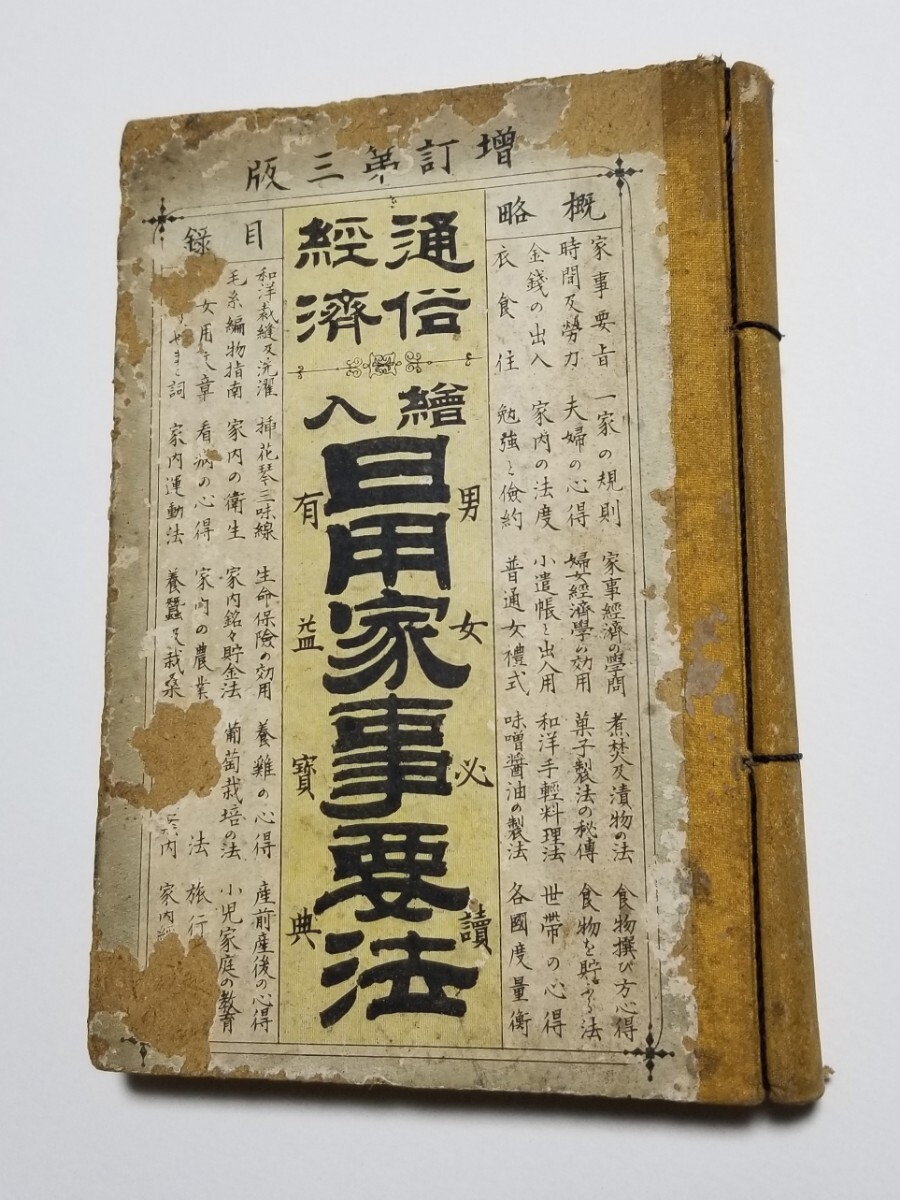 增訂第三版
概略
家事要旨 一家の規則 家事經濟の學問 煮焚及漬物の法 食物撰び方心得
時間及勞力 夫婦の心得 婦女經濟學の効用 菓子製法の秘傳 食物を貯ふる法
金錢の出入 家内の法度 小遣帳と出入用 和洋手輕料理法 世帶の心得
衣食住 勉強と儉約 普通女禮式 味噌醬油の製法 各國度量衡
通俗
經濟
繪入
男女必讀
日用家事要法
有益寶典
目錄
和洋裁縫及洗濯 挿花琴三味線 生命保險の効用 養雞の心得 産前産後の心得
毛糸編物指南 家内の衛生 家内銘々貯金法 葡萄栽培の法 小児家庭の教育
女用文章 看病の心得 家内の農業 法 旅行
やまと詞 家内運動法 養蠶及栽桑 内 家内